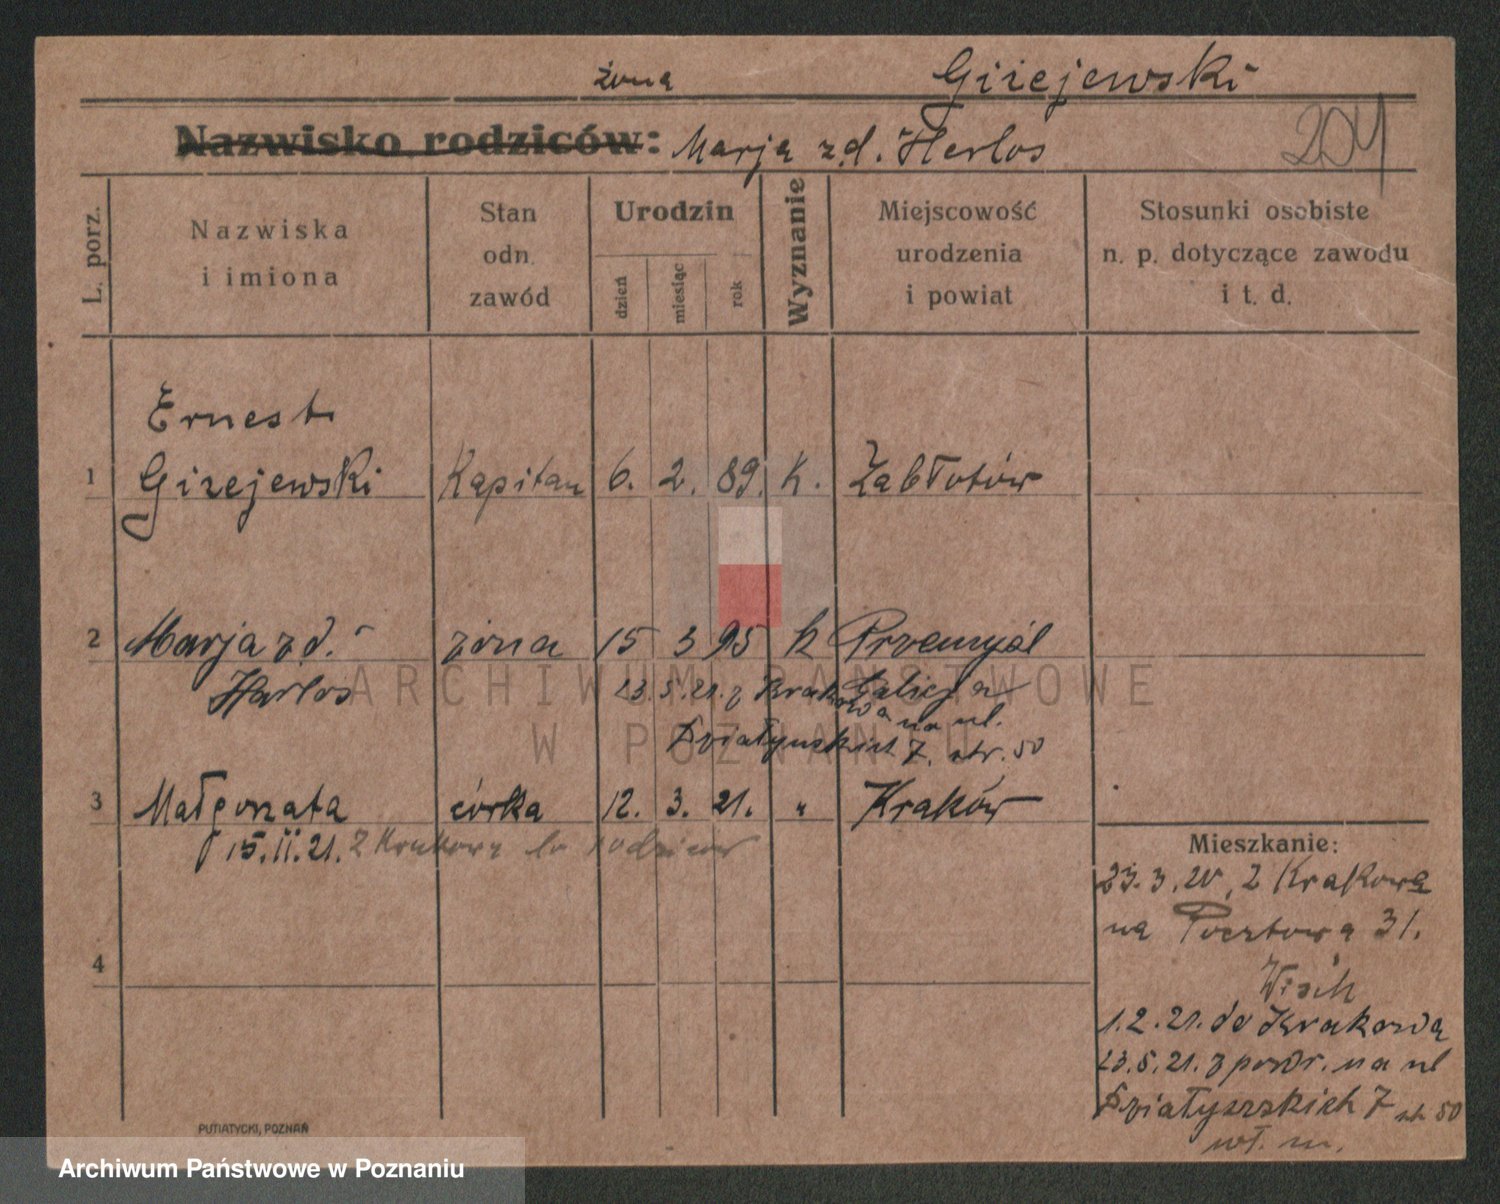 żona Giżejewski
Nazwisko rodziców: Marja z d. Herlos
204
L. porz.
Nazwiska
i imiona
Stan
odn.
zawód
Urodzin
dzień
miesiąc
rok
Wyznanie
Miejscowość
urodzenia
i powiat
Stosunki osobiste
n. p. dotyczące zawodu
i t. d.
Ernest
1 Giżejewski Kapitan 6. 2. 89. K. Zabłotów
2 Marja z d. żona 15 3 95 k Przemyśl
Harlos Galicja
23.5.21. z Krakowa na ul.
Działyńskich 7. str. 50
3 Małgorzata córka 12. 3. 21. " Kraków
15.II.21. z Krakowa do rodziców
4
Mieszkanie:
23.3.20, z Krakowa
na Pocztowa 31.
1.2.21. do Krakowa
23.5.21. z powr. na ul
Działyńskich 7 str 50
PUTIATYCKI, POZNAŃ
ARCHIWUM PAŃSTWOWE
W POZNANIU
Archiwum Państwowe w Poznaniu